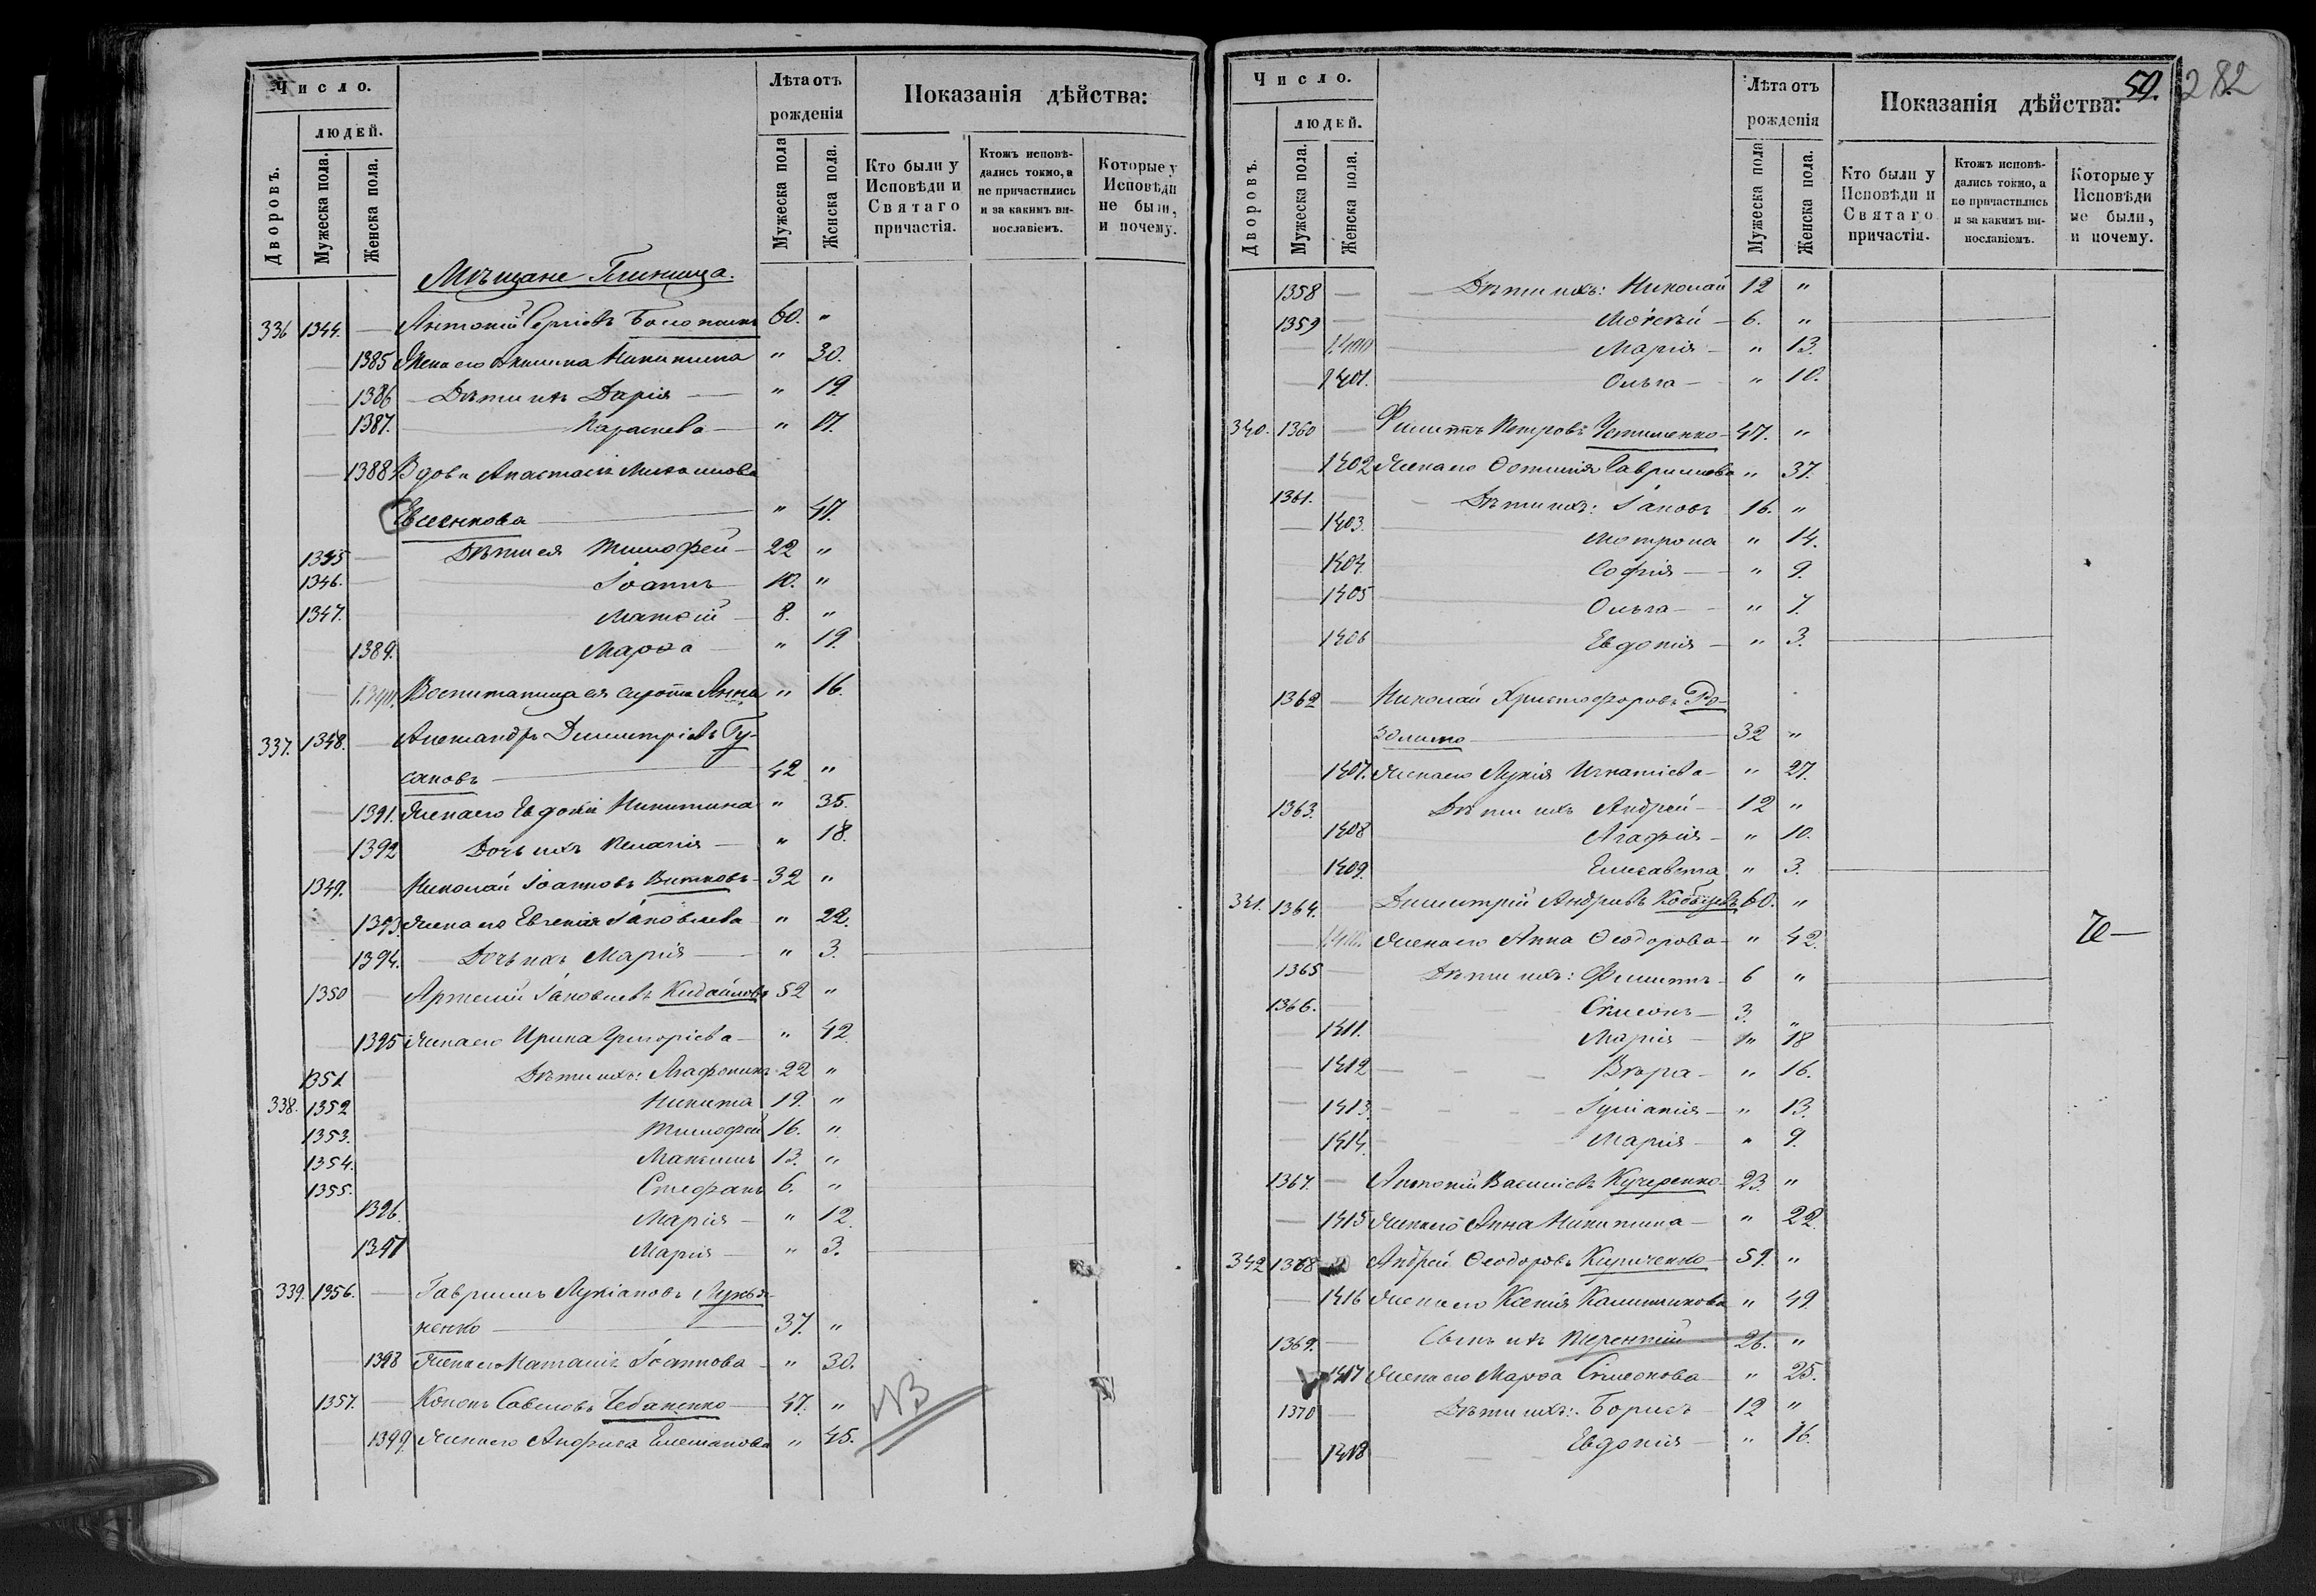 Число.
людей.
Дворовъ.
Мужеска пола.
Женска пола.
Лѣта отъ
рожденія
Мужеска пола
Женска пола.
Показанія дѣйства:
Кто были у
Исповѣди и
Святаго
причастія.
Ктожъ исповѣ-
дались токмо, а
не причастились
и за какимъ ви-
нословіемъ.
Которые у
Исповѣди
не были,
и почему.
Мѣщане
336 1344. — Антоній Сергіевъ 60. "
— 1385 Жена его Никитина " 30.
— 1386 Дѣти ихъ Дарія " 19.
— 1387. Параскева " 17.
— 1388 Вдова Анастасія
Евсенкова " 47.
1345 — Дѣти ея Тимофей 22 "
1346. — Іоаннъ 10. "
1347. Матѳій 8. "
1389. Марѳа " 19.
— 1390. Воспитаница ея сирота Анна " 16.
337. 1348. — Александръ Димитріевъ Гу-
саковъ 42 "
— 1391. Жена его Евдокія Никитина " 35.
— 1392 Дочь ихъ Пелагія " 18.
1349. — Николай Іоанновъ 32 "
1393. Жена его Евгенія Іаковлева " 22.
— 1394. Дочь ихъ Марія " 3.
1350 — Артемій Іаковлевъ 52 "
— 1395 Жена его Ирина Григоріева " 42
1351 — Дѣти ихъ: Агафоникъ 22 "
338. 1352 Никита 19. "
1353. Тимофей 16. "
1354. Максимъ 13. "
1355. Стефанъ 6. "
1396. Марія " 12.
1397 Марія " 3.
339. 1356. — Гавріилъ Лукіановъ Лукья-
ненко 37. "
1398 Жена его Наталія Іоаннова " 30.
1357. — Кононъ Савеловъ Чебаненко 47. "
— 1399. Жена его Анфиса " 45.
NB
Число.
людей.
Дворовъ.
Мужеска пола.
Женска пола.
Лѣта отъ
рожденія
Мужеска пола
Женска пола.
Показанія дѣйства:
59. 282
Кто были у
Исповѣди и
Святаго
причастія.
Ктожъ исповѣ-
дались токмо, а
не причастились
и за какимъ ви-
нословіемъ.
Которые у
Исповѣди
не были,
и почему.
1358 — Дѣти ихъ: Николай 12 "
1359 — Моѵсей 6. "
— 1400 Марія " 13.
— 1401. Ольга " 10.
340. 1360 — Филиппъ Петровъ Устименко 47. "
— 1402 Жена его Фотинія Гавриилова " 37.
1361. — Дѣти ихъ: Іаковъ 16. "
— 1403. Мотрона " 14.
— 1404. Софія " 9.
— 1405 Ольга " 7.
— 1406 Евдокія " 3.
1362 — Николай Христофоровъ
32 "
— 1407. Жена его Лукія Игнатіева " 27.
1363. Дѣти ихъ Андрей 12 "
1408 Агафія " 10.
— 1409. Елисавета " 3.
341. 1364. — Димитрій Андреевъ 60. "
— 1410. Жена его Анна Ѳеодорова " 42.
1365 — Дѣти ихъ: Филиппъ 6 "
1366. — Сѵмеонъ 3. "
— 1411. Марія " 18
— 1412 Вѣра " 16.
— 1413. Іуліанія " 13.
— 1414. Марія " 9.
1367. — Антоній Василіевъ Кучеренко 23. "
— 1415 Жена его Анна Никитина " 22.
342 1368 Андрей Ѳеодоровъ Кириченко 59. "
— 1416 Жена его Ксенія " 49.
1369. — Сынъ ихъ Терентій 26. "
1417 Жена его Марѳа Сѵмеонова " 25.
1370 — Дѣти ихъ: Борисъ 12 "
— 1418 Евдокія " 16.